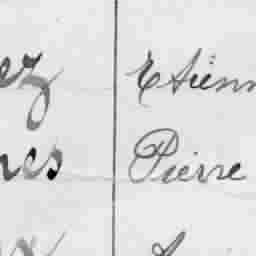 ez Etienn
nes Pierre